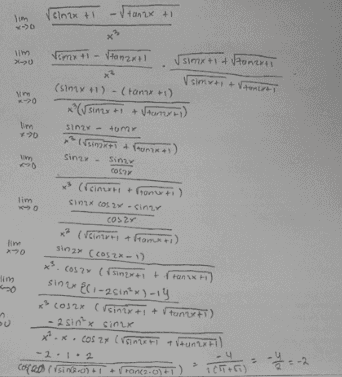 lim x→0 √(sin2x +1) - √(tan2x +1) / x³
lim x→0 √(sin2x+1) - √(tan2x+1) / x³ . √(sin2x+1) + √(tan2x+1) / √(sin2x+1) + √(tan2x+1)
lim x→0 (sin2x +1) - (tan2x +1) / x³(√(sin2x+1) + √(tan2x+1))
lim x→0 sin2x - tan2x / x³ (√(sin2x+1) + √(tan2x+1))
lim x→0 sin2x - sin2x/cos2x / x³ (√(sin2x+1) + √(tan2x+1))
lim x→0 sin2x cos2x - sin2x / cos2x / x³ (√(sin2x+1) + √(tan2x+1))
lim x→0 sin2x (cos2x - 1) / x³ . cos2x (√(sin2x+1) + √(tan2x+1))
lim x→0 sin2x {(1-2sin²x)-1} / x³ cos2x (√(sin2x+1) + √(tan2x+1))
-2 sin²x sin2x / x² . x . cos2x (√(sin2x+1) + √(tan2x+1))
-2 . 1 . 2 / (√(sin2(0)+1) + √(tan2(0)+1)) = -4 / 1(√1+√1) = -4/2 = -2